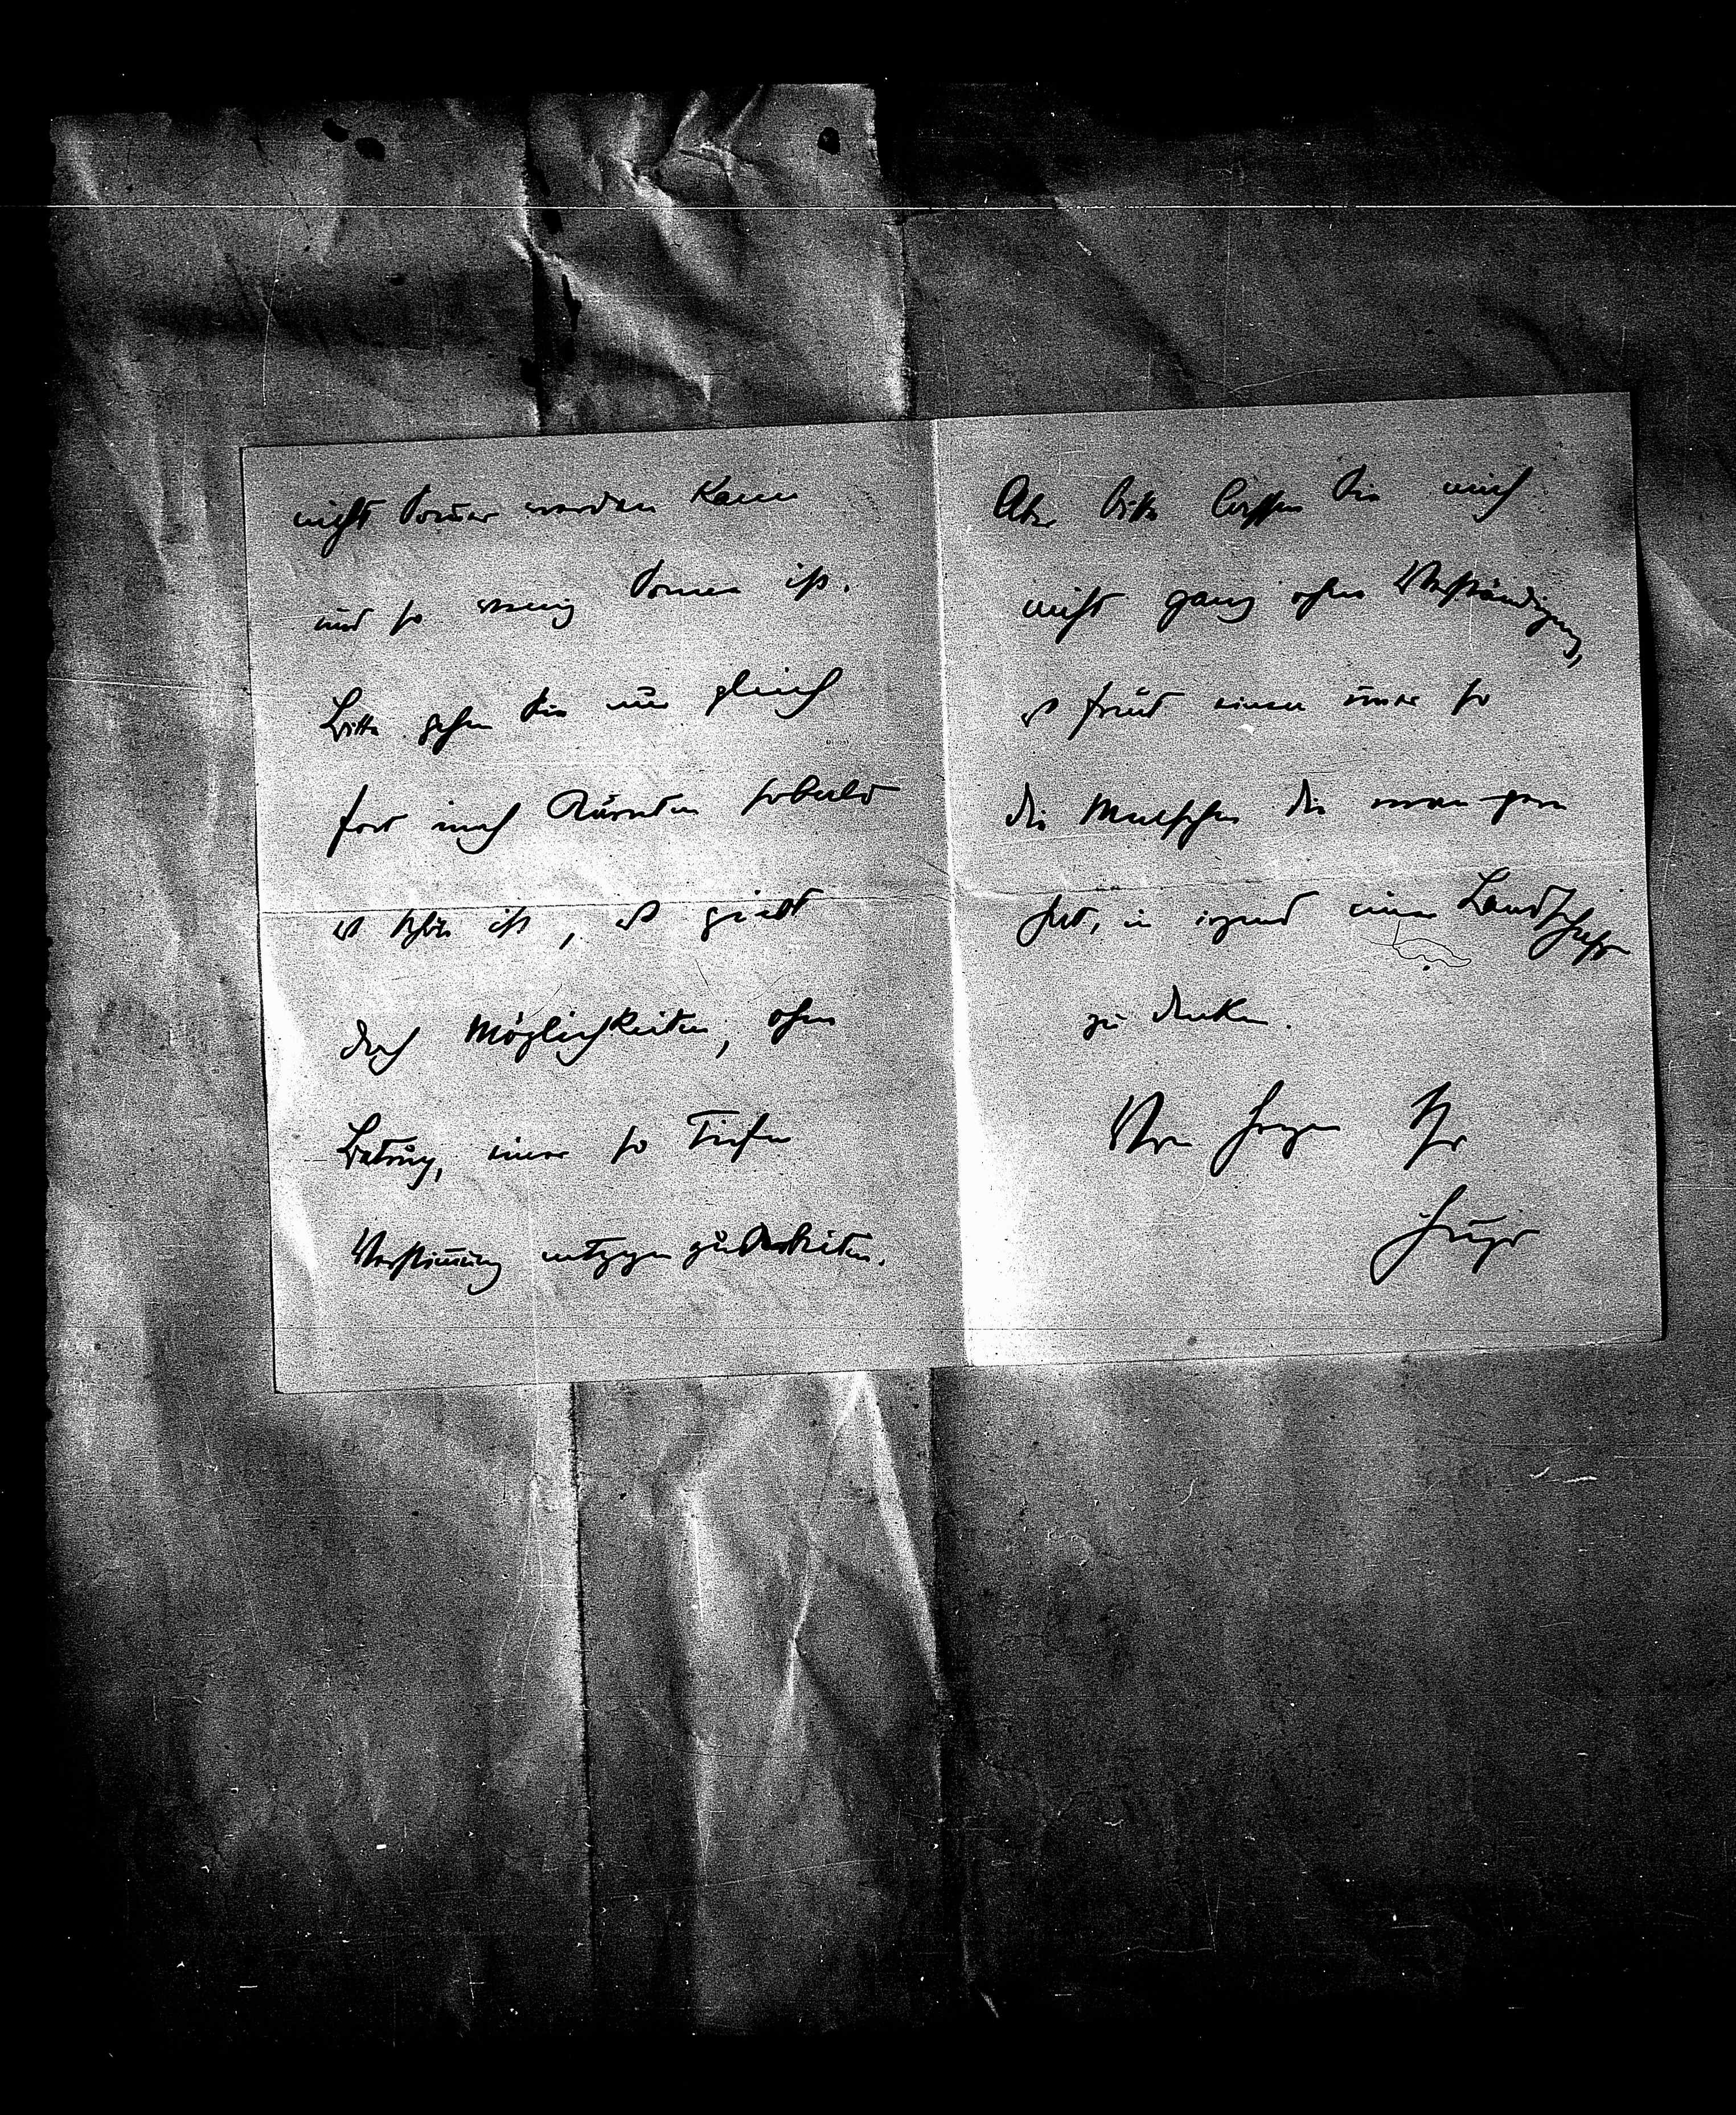 nicht Som̄er werden kann
und so wenig Som̄er ist.
Bitte gehen Sie nur gleich
fort nach Kärnten sobald
es schön ist, es giebt
doch Möglichkeiten, ohne
Betrug, einer so tiefen
Verstim̄ung entgegen zu arbeiten.
Aber bitte lassen Sie mich
nicht ganz ohne Verständigung,
es freut einen im̄er so
die Menschen die man gern
hat, in irgend einer Landschaft
zu denken.
Von Herzen Ihr